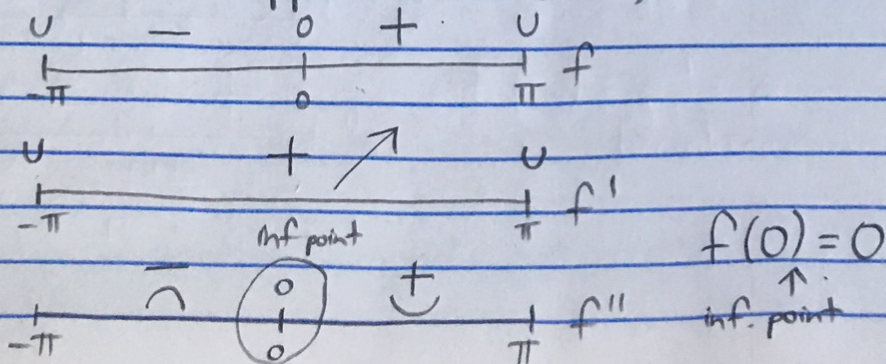 U — 0 + U
-π 0 π f
U + ↗ U
-π π f'
inf point
f(0) = 0
— 0 + ↑
⌢ ⌣ f'' inf. point
-π 0 π